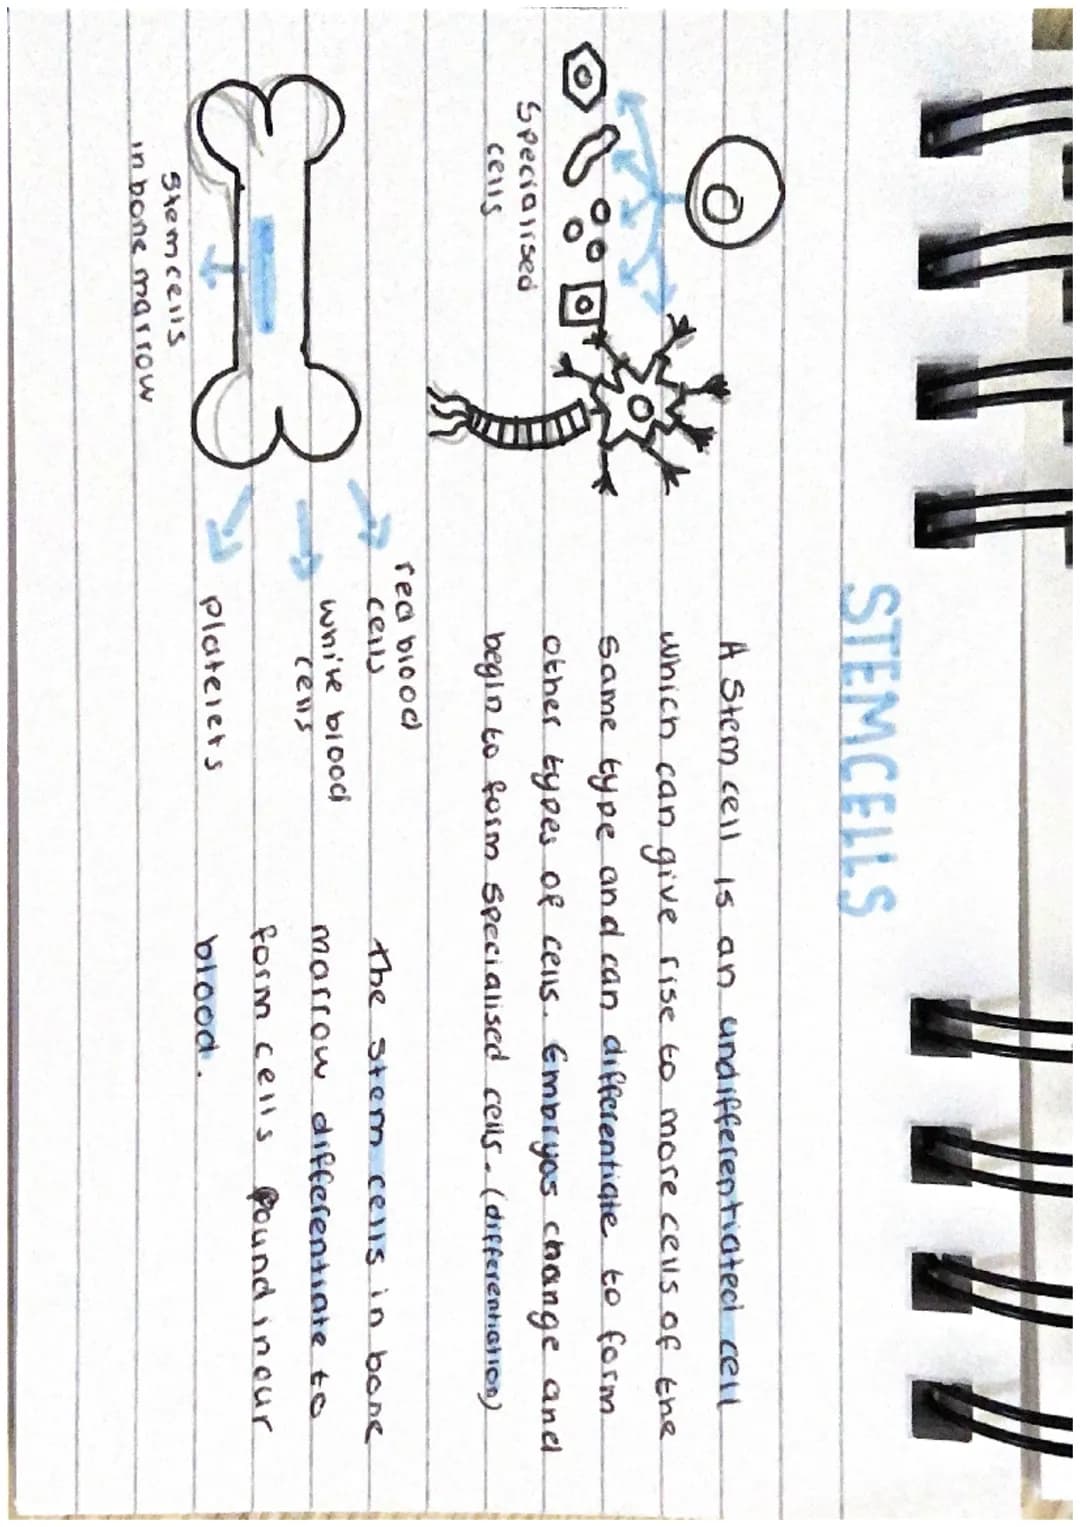 STEMCELLS
A stem cell is an undifferentiated cell
which can give rise to more cells of the
same type and can differentiate to form
other types of cells. Embryos change and
begin to form specialised cells. (differentiation)
Specialised
cells
red blood
cells
white blood
cells
platelets
Stem cells
in bone marrow
The stem cells in bone
marrow differentiate to
form cells found in our
blood.